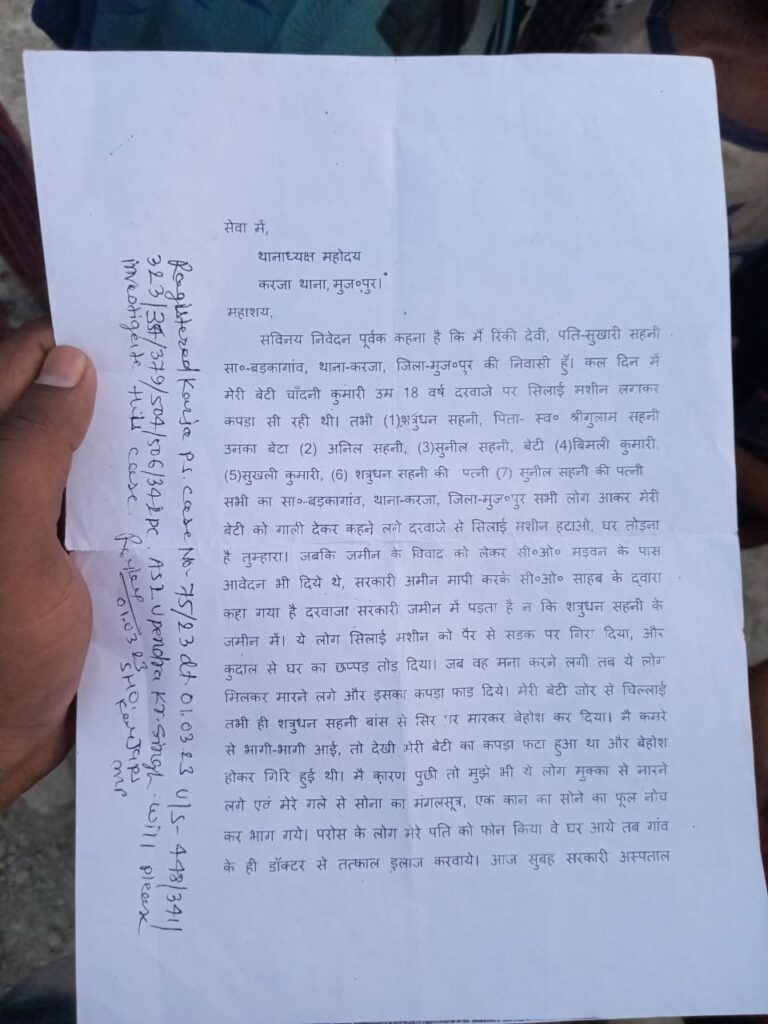 सेवा में,
थानाध्यक्ष महोदय
करजा थाना, मुज०पुर।
महाशय,
सविनय निवेदन पूर्वक कहना है कि मैं रिंकी देवी, पति-सुखारी सहनी
सा०-बड़कागांव, थाना-करजा, जिला-मुज०पुर की निवासी हूँ। कल दिन में
मेरी बेटी चाँदनी कुमारी उम्र 18 वर्ष दरवाजे पर सिलाई मशीन लगाकर
कपड़ा सी रही थी। तभी (1)शत्रुधन सहनी, पिता- स्व० श्रीगुलाम सहनी
उनका बेटा (2) अनिल सहनी, (3)सुनील सहनी, बेटी (4)बिमली कुमारी,
(5)सुखली कुमारी, (6) शत्रुधन सहनी की पत्नी (7) सुनील सहनी की पत्नी
सभी का सा०-बड़कागांव, थाना-करजा, जिला-मुज०पुर सभी लोग आकर मेरी
बेटी को गाली देकर कहने लगे दरवाजे से सिलाई मशीन हटाओ, घर तोड़ना
है तुम्हारा। जबकि जमीन के विवाद को लेकर सी०ओ० मड़वन के पास
आवेदन भी दिये थे, सरकारी अमीन मापी करके सी०ओ० साहब के द्वारा
कहा गया है दरवाजा सरकारी जमीन में पड़ता है न कि शत्रुधन सहनी के
जमीन में। ये लोग सिलाई मशीन को पैर से सड़क पर गिरा दिया, और
कुदाल से घर का छप्पड़ तोड़ दिया। जब वह मना करने लगी तब ये लोग
मिलकर मारने लगे और इसका कपड़ा फाड़ दिये। मेरी बेटी जोर से चिल्लाई
तभी ही शत्रुधन सहनी बांस से सिर पर मारकर बेहोश कर दिया। मै कमरे
से भागी-भागी आई, तो देखी मेरी बेटी का कपड़ा फटा हुआ था और बेहोश
होकर गिरि हुई थी। मै कारण पुछी तो मुझे भी ये लोग मुक्का से मारने
लगे एवं मेरे गले से सोना का मंगलसूत्र, एक कान का सोने का फूल नोच
कर भाग गये। परोस के लोग मेरे पति को फोन किया वे घर आये तब गांव
के ही डॉक्टर से तत्काल इलाज करवाये। आज सुबह सरकारी अस्पताल
Registered Karja P.S. Case No- 75/23 dt. 01.03.23 U/S- 448/341/
323/354/379/504/506/34 IPC. ASI Upendra Kr. Singh will please
investigate this case.
01.03.23
SHO, Karja PS